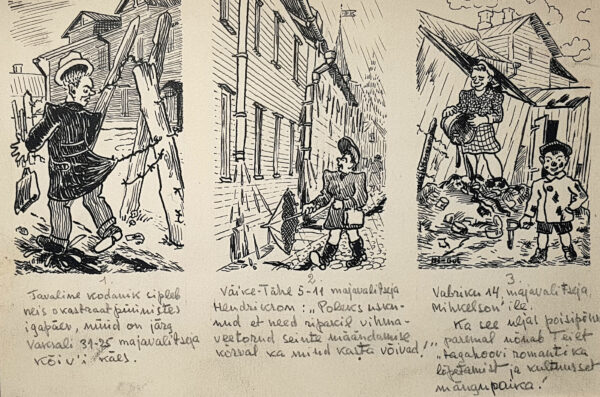 1.
Tavaline kodanik sipleb
neis okastraat püünistes
igapäev, nüüd on järg
Vaksali 31-25 majavalitseja
Kõiv'i käes.
2.
Väike-Tähe 5-11 majavalitseja
Hendrikson: „Poleks usku-
nud et need ripacil vihma-
veetorud seinte määndamise
kõrval ka mind kasta võivad!"
3.
Vabriku 14, majavalitseja
Mihkelson'ile.
Ka see uljas poisipõnn
paremal nõuab Teilt
„tagahoovi romantika
lõpetamist ja kultuurset
mängupaika!